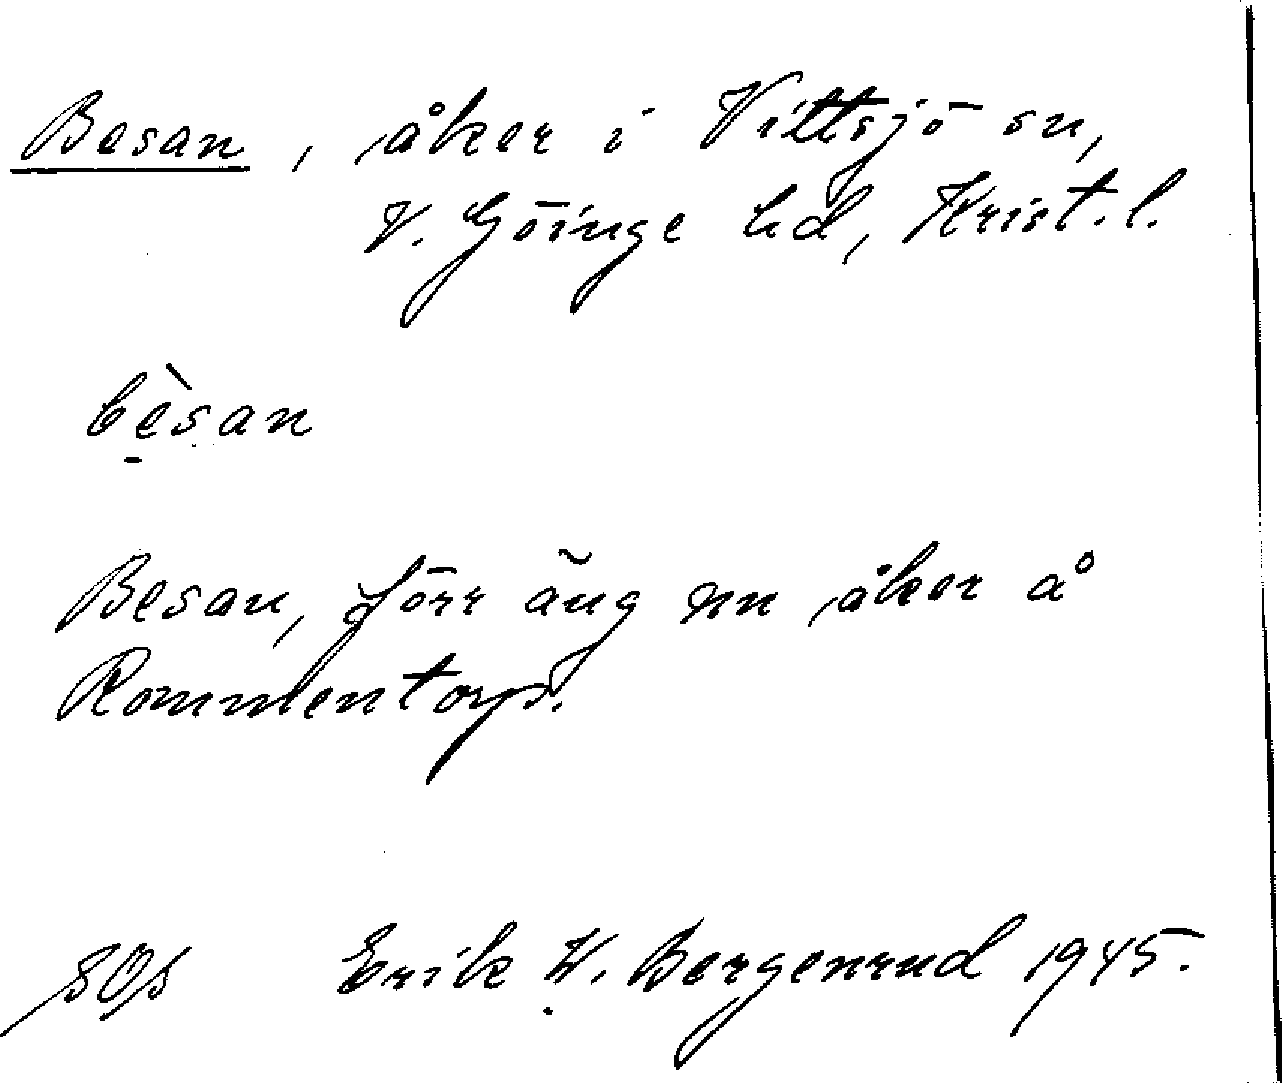 Besan, åker i Vittsjö sn,
V. Göinge hd, Krist. l.
bèsan
Besan, förr äng nu åker å
Rommentorp.
SOS Erik W. Bergenrud 1945.